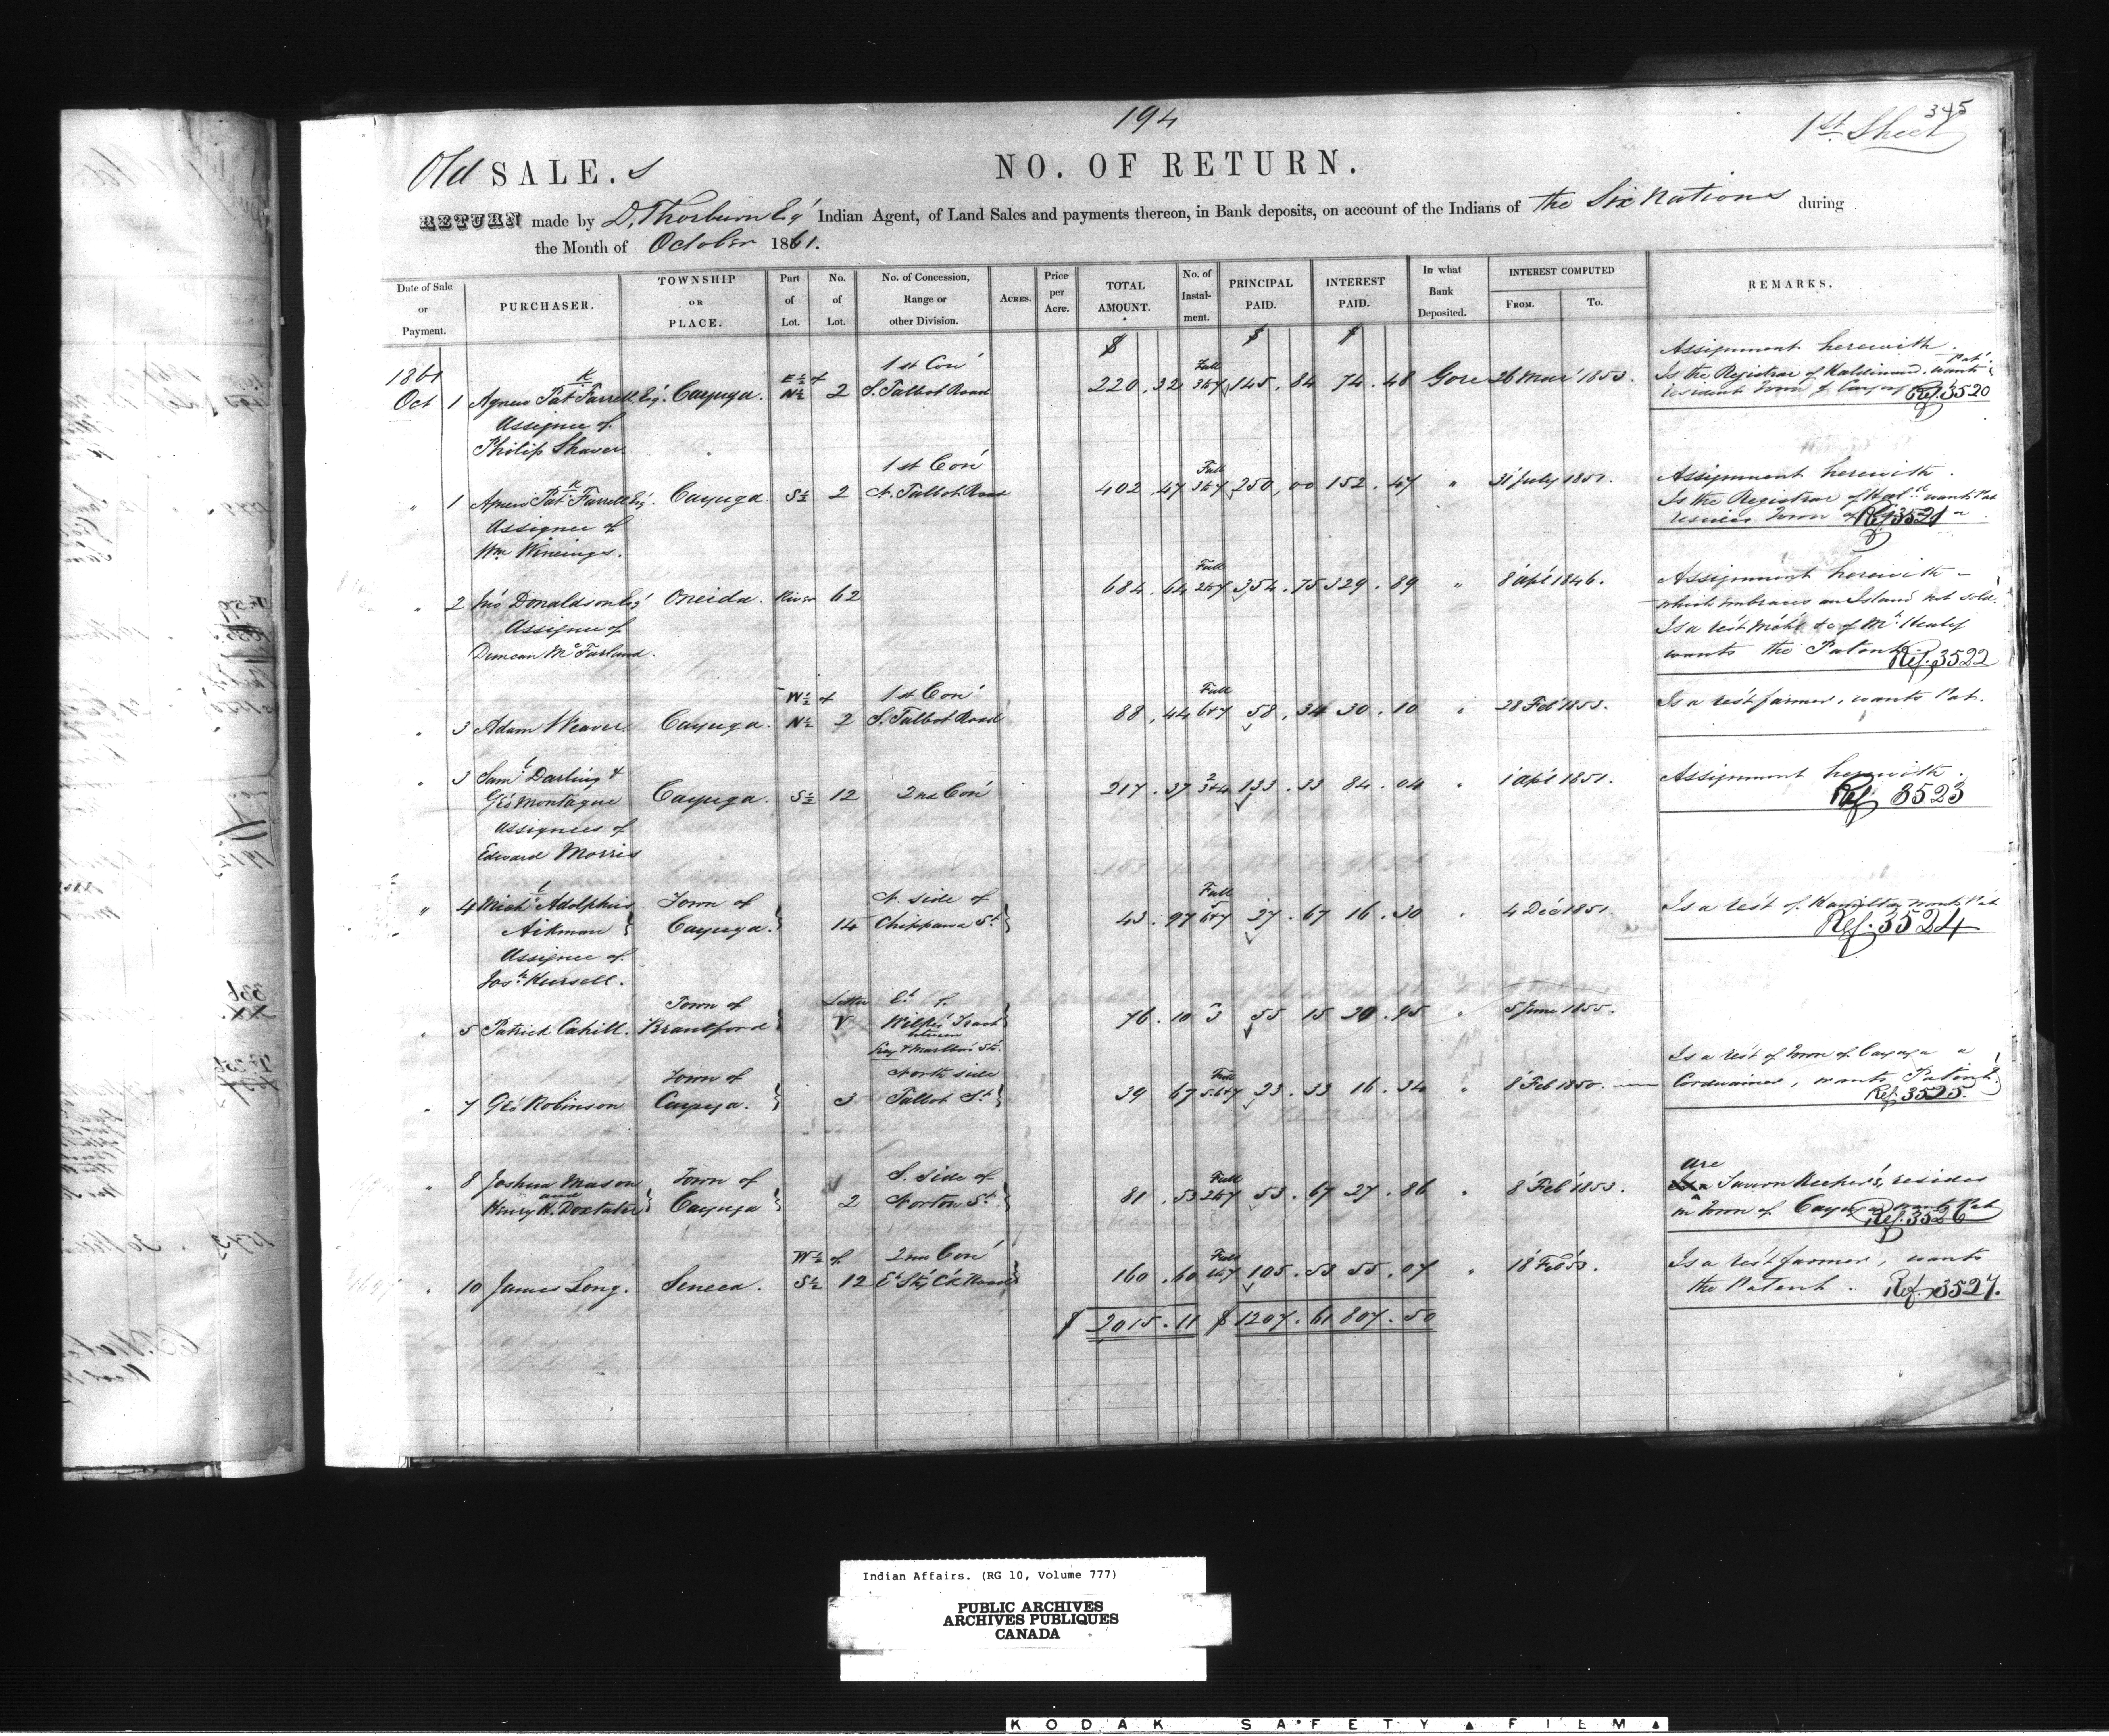 194
345
1st Sheet
Old SALE.s
NO. OF RETURN.
RETURN made by D. Thorburn Esqr Indian Agent, of Land Sales and payments thereon, in Bank deposits, on account of the Indians of the Six Nations during
the Month of October 1861.
Date of Sale or Payment. PURCHASER. TOWNSHIP OR PLACE. Part of Lot. No. of Lot. No. of Concession, Range or other Division. ACRES. Price per Acre. TOTAL AMOUNT. No. of Instal-ment. PRINCIPAL PAID. INTEREST PAID. In what Bank Deposited. INTEREST COMPUTED FROM. To. REMARKS.
$ $ $
1861 1st Con Full Assignment herewith.
Oct 1 Agnew Patk Farrell Esqr Cayuga. E½ of N½ 2 S. Talbot Road 220.32 3to7 145.84 74.48 Gore 26 Mar 1853. Is the Registrar of Haldimand, wants Pat
Assignee of resident Town of Cayuga Ref. 3520
Philip Shaver
1st Con Full Assignment herewith.
" 1 Agnew Patk Farrell Esqr. Cayuga S½ 2 N. Talbot Road 402.47 3to7 250.00 152.47 " 31 July 1851. Is the Registrar of Hald wants Pat
Assignee of Town of Ref 3521
Wm
Full Assignment herewith
" 2 Jno Donaldson Esqr Oneida. River 62 684.64 2to7 354.75 329.89 " 8 Apl 1846. which embraces an Island not sold.
Assignee of Is a rest of
Duncan McFarland. wants the Patent Ref. 3522
W½ of 1st Con Full
" 3 Adam Weaver Cayuga. N½ 2 S. Talbot Road 88.44 6to7 58.34 30.10 " 28 Feb 1853. Is a rest farmer, wants Pat.
" 3 Saml Darling & Assignment herewith.
Geo Montague Cayuga. S½ 12 2nd Con 217.37 2 3to4 133.33 84.04 " 1 Apl 1851. Ref 3523
Assignees of
Edward Morris
" 4 Michl Adolphus Town of N. side of Full
Aikman Cayuga. 14 Chippawa St 43.97 5 6to7 27.67 16.30 " 4 Dec 1851. Is a rest of Hamilton wants Pat
Assignee of Ref. 3524
Josh Russell.
Town of Letter
" 5 Patrick Cahill. Brantford V Wilkes Tract between 76.10 3 55.15 20.95 " 5 June 1855.
& Marlbro Sts.
Town of North side Full Is a rest of Town of Cayuga a
" 7 Geo Robinson Cayuga. 3 Talbot St 39.67 5.6to7 23.33 16.34 " 8 Feb 1850. Cordwainer, wants Patent.
Ref. 3525.
" 8 Joshua Mason Town of S. side of Full are Tavern Keepers, resides
and Henry H. Doxtater Cayuga 2 Norton St 81.53 2to7 53.67 27.86 " 8 Feb 1853. in Town of Cayuga wants Pat
Ref. 3526
W½ of 2nd Con Full Is a rest farmer, wants
" 10 James Long. Seneca. S½ 12 160.60 105.53 55.07 " 18 Feb 53. the Patent. Ref. 3527.
$ 2015.11 $ 1207.61 807.50
Indian Affairs. (RG 10, Volume 777)
PUBLIC ARCHIVES
ARCHIVES PUBLIQUES
CANADA
KODAK SAFETY FILM